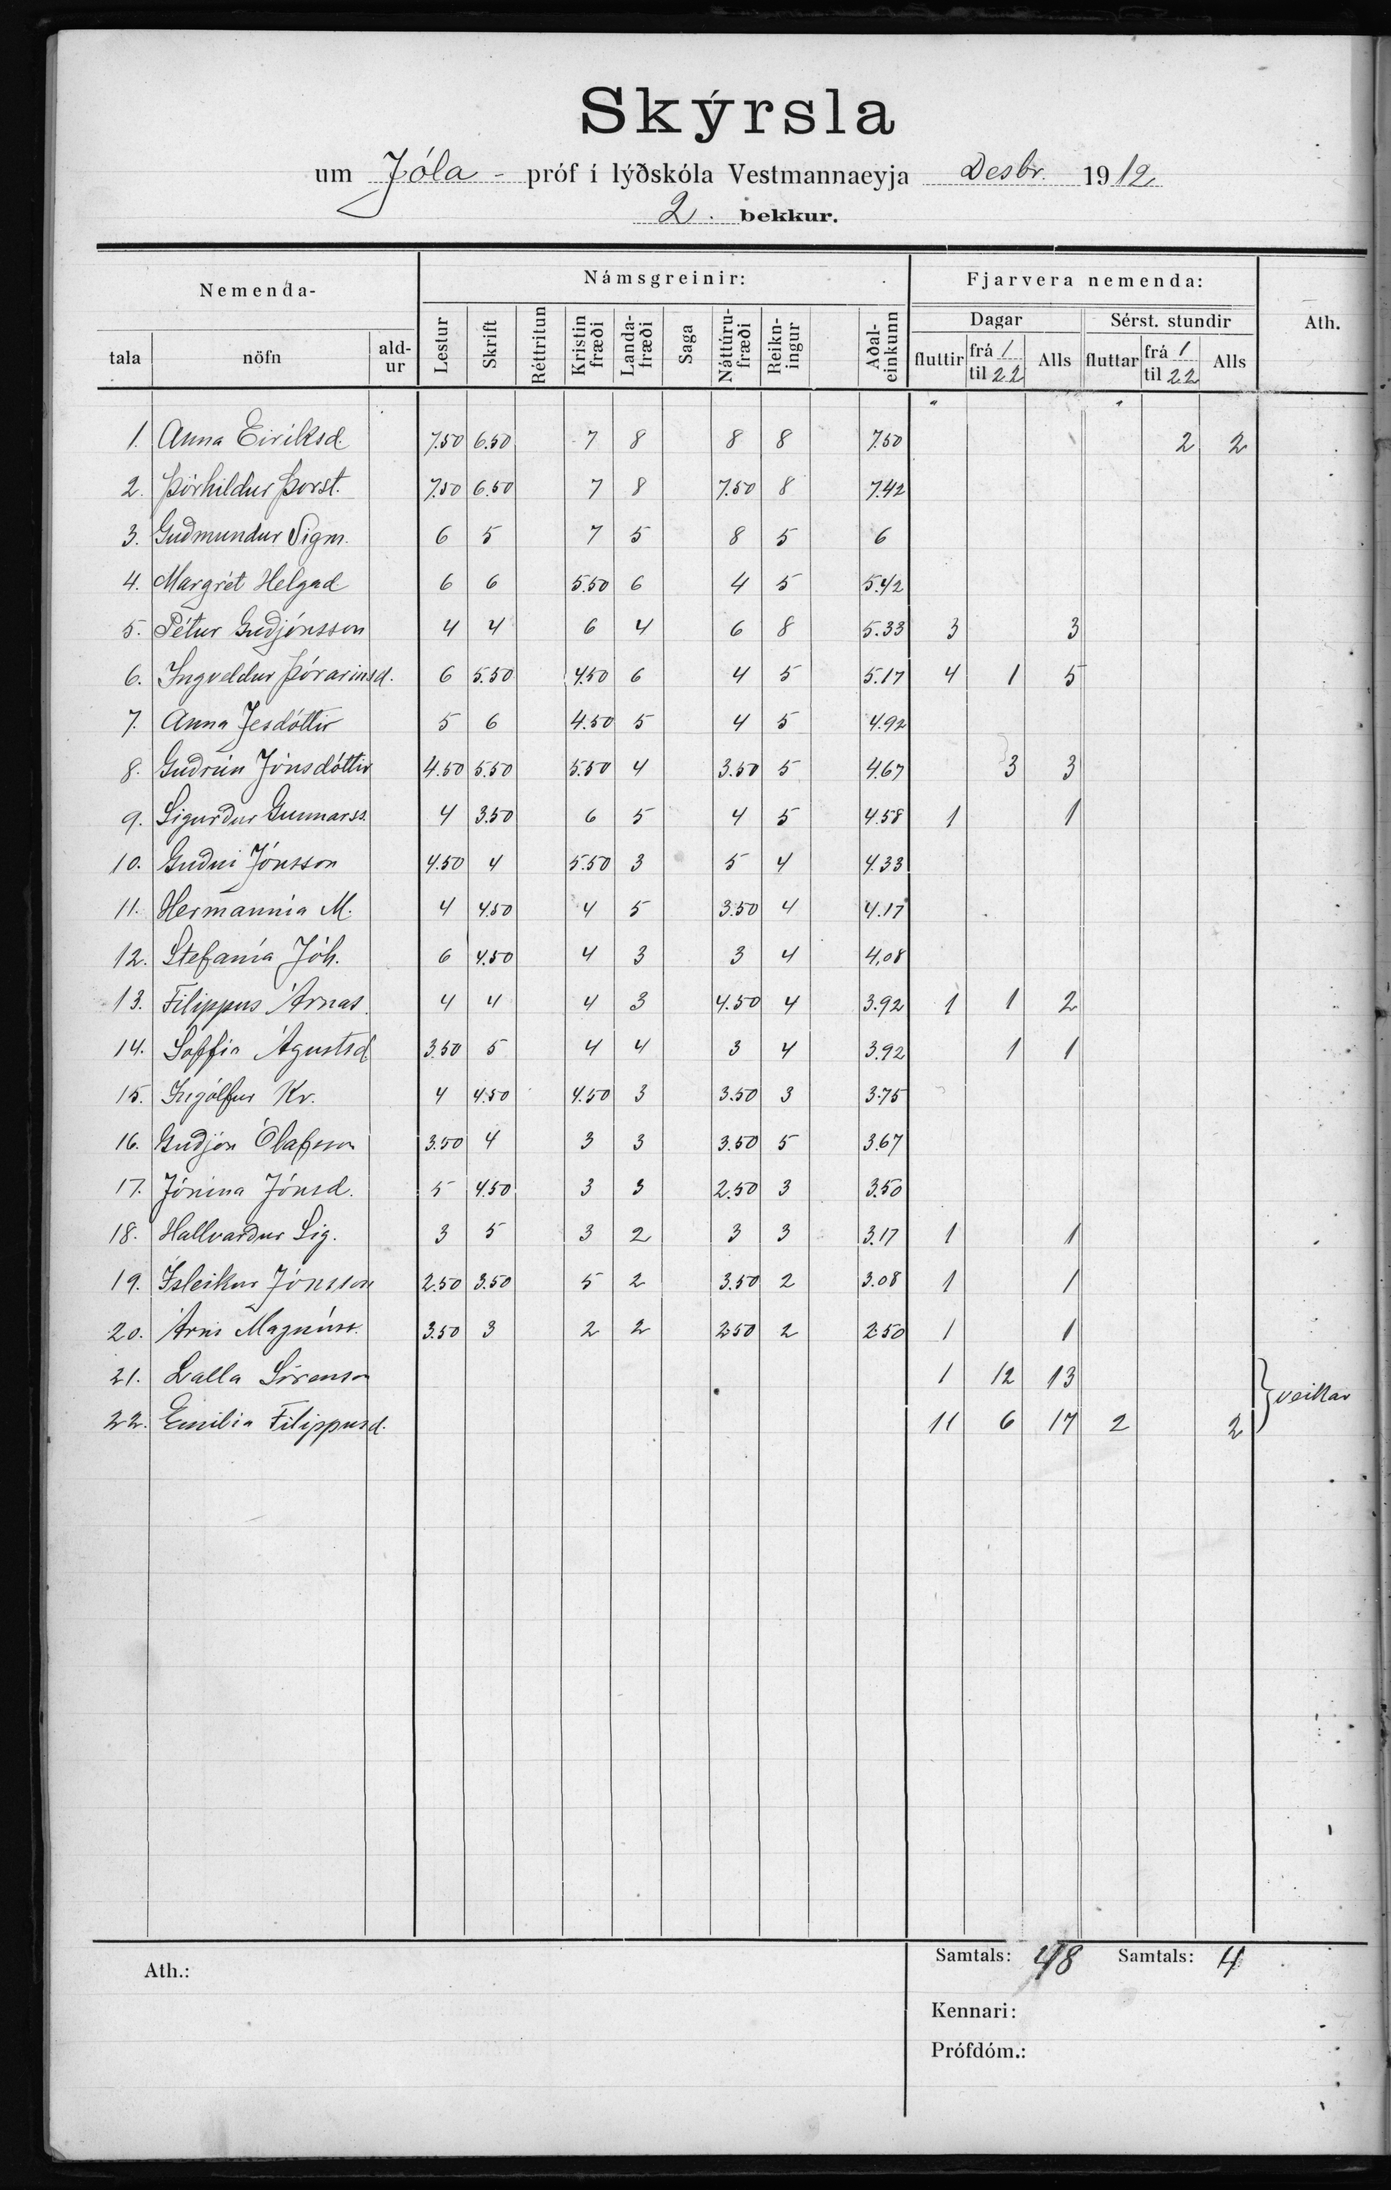 Skýrsla
um Jóla - próf í lýðskóla Vestmannaeyja Desbr. 1912
2. bekkur.
Nemenda- Námsgreinir: Fjarvera nemenda: Ath.
tala nöfn ald-ur Lestur Skrift Réttritun Kristin fræði Landa-fræði Saga Náttúru-fræði Reikn-ingur Aðal-einkunn Dagar Sérst. stundir
fluttir frá 1 til 22 Alls fluttar frá 1 til 22 Alls
1. Anna Eiríksd. 7.50 6.50 7 8 8 8 7.50 2 2
2. Þórhildur Þorst. 7.50 6.50 7 8 7.50 8 7.42
3. Guðmundur Sigm. 6 5 7 5 8 5 6
4. Margrét Helgad 6 6 5.50 6 4 5 5.42
5. Pétur Guðjónsson 4 4 6 4 6 8 5.33 3 3
6. Ingveldur Þórarinsd. 6 5.50 4.50 6 4 5 5.17 4 1 5
7. Anna Jesdóttir 5 6 4.50 5 4 5 4.92
8. Guðrún Jónsdóttir 4.50 5.50 5.50 4 3.50 5 4.67 3 3
9. Sigurður Gunnarss. 4 3.50 6 5 4 5 4.58 1 1
10. Guðni Jónsson 4.50 4 5.50 3 5 4 4.33
11. Hermannía M. 4 4.50 4 5 3.50 4 4.17
12. Stefanía Jóh. 6 4.50 4 3 3 4 4.08
13. Filippus Árnas. 4 4 4 3 4.50 4 3.92 1 1 2
14. Soffía Ágústsd 3.50 5 4 4 3 4 3.92 1 1
15. Ingólfur Kr. 4 4.50 4.50 3 3.50 3 3.75
16. Guðjón Ólafsson 3.50 4 3 3 3.50 5 3.67
17. Jónína Jónsd. 5 4.50 3 3 2.50 3 3.50
18. Hallvarður Sig. 3 5 3 2 3 3 3.17 1 1
19. Ísleikur Jónsson 2.50 3.50 5 2 3.50 2 3.08 1 1
20. Árni Magnúss. 3.50 3 2 2 2.50 2 2.50 1 1
21. Lalla Sörenson 1 12 13
} veikar
22. Emilía Filippusd. 11 6 17 2 2
Ath.: Samtals: 48 Samtals: 4
Kennari:
Prófdóm.: